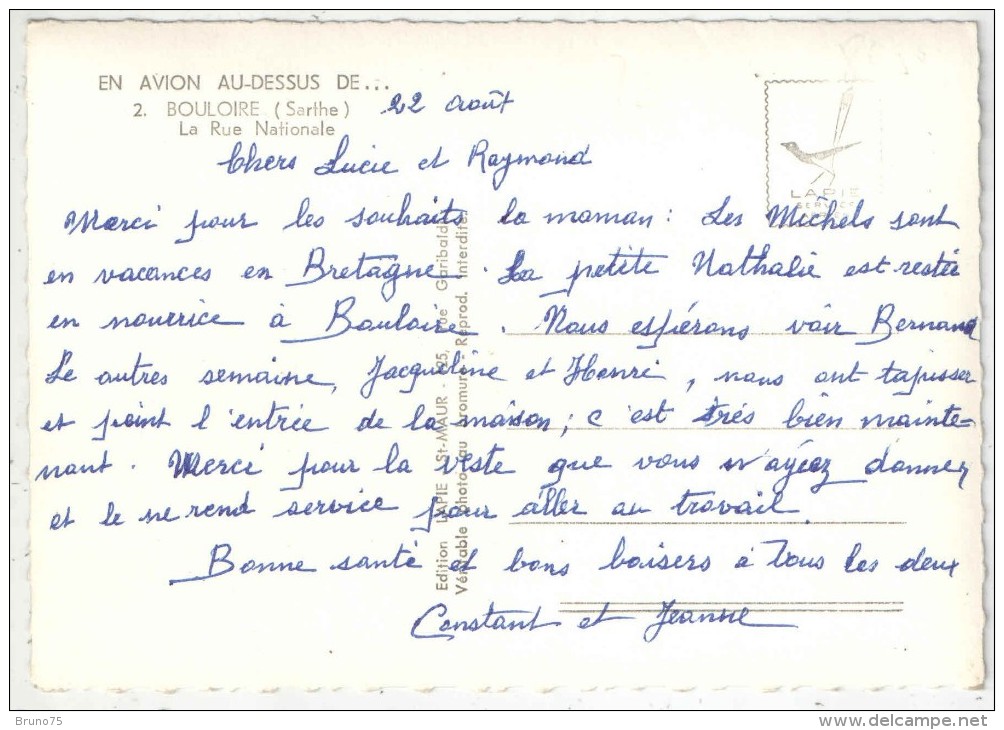 EN AVION AU-DESSUS DE...
2. BOULOIRE (Sarthe)
La Rue Nationale
22 Août
Chers Lucie et Raymond
Merci pour les souhaits la maman : Les Michels sont
en vacances en Bretagne. La petite Nathalie est restée
en nourrice à Bouloire. Nous espérons voir Bernard
Le autres semaine, Jacqueline et Henri, nous ont tapisser
et point l'entrée de la maison; c'est très bien mainte-
nant. Merci pour la veste que vous m'ayez donner
et le me rend service pour aller au travail
Bonne santé et bons baisers à Tous les deux
Constant et Jeanne
Edition LAPIE - St-MAUR - 125, rue Garibaldi
Véritable photo au bromure - Reprod. interdite.
LAPIE
SERVICE
Bruno75
www.delcampe.net